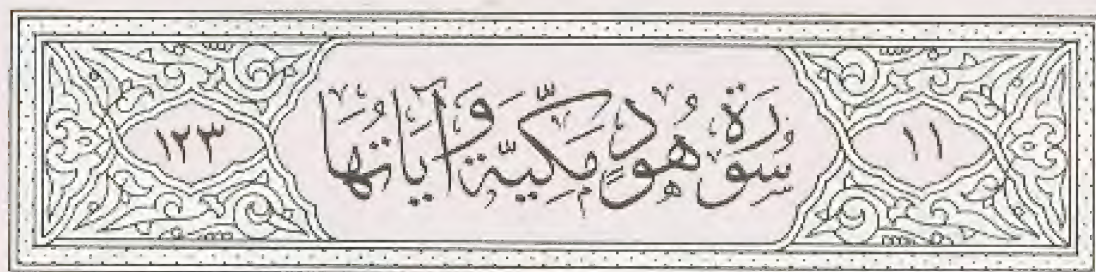 ١١ سُورَة هُودٍ مَكِّيّة وَآيَاتُهَا ١٢٣